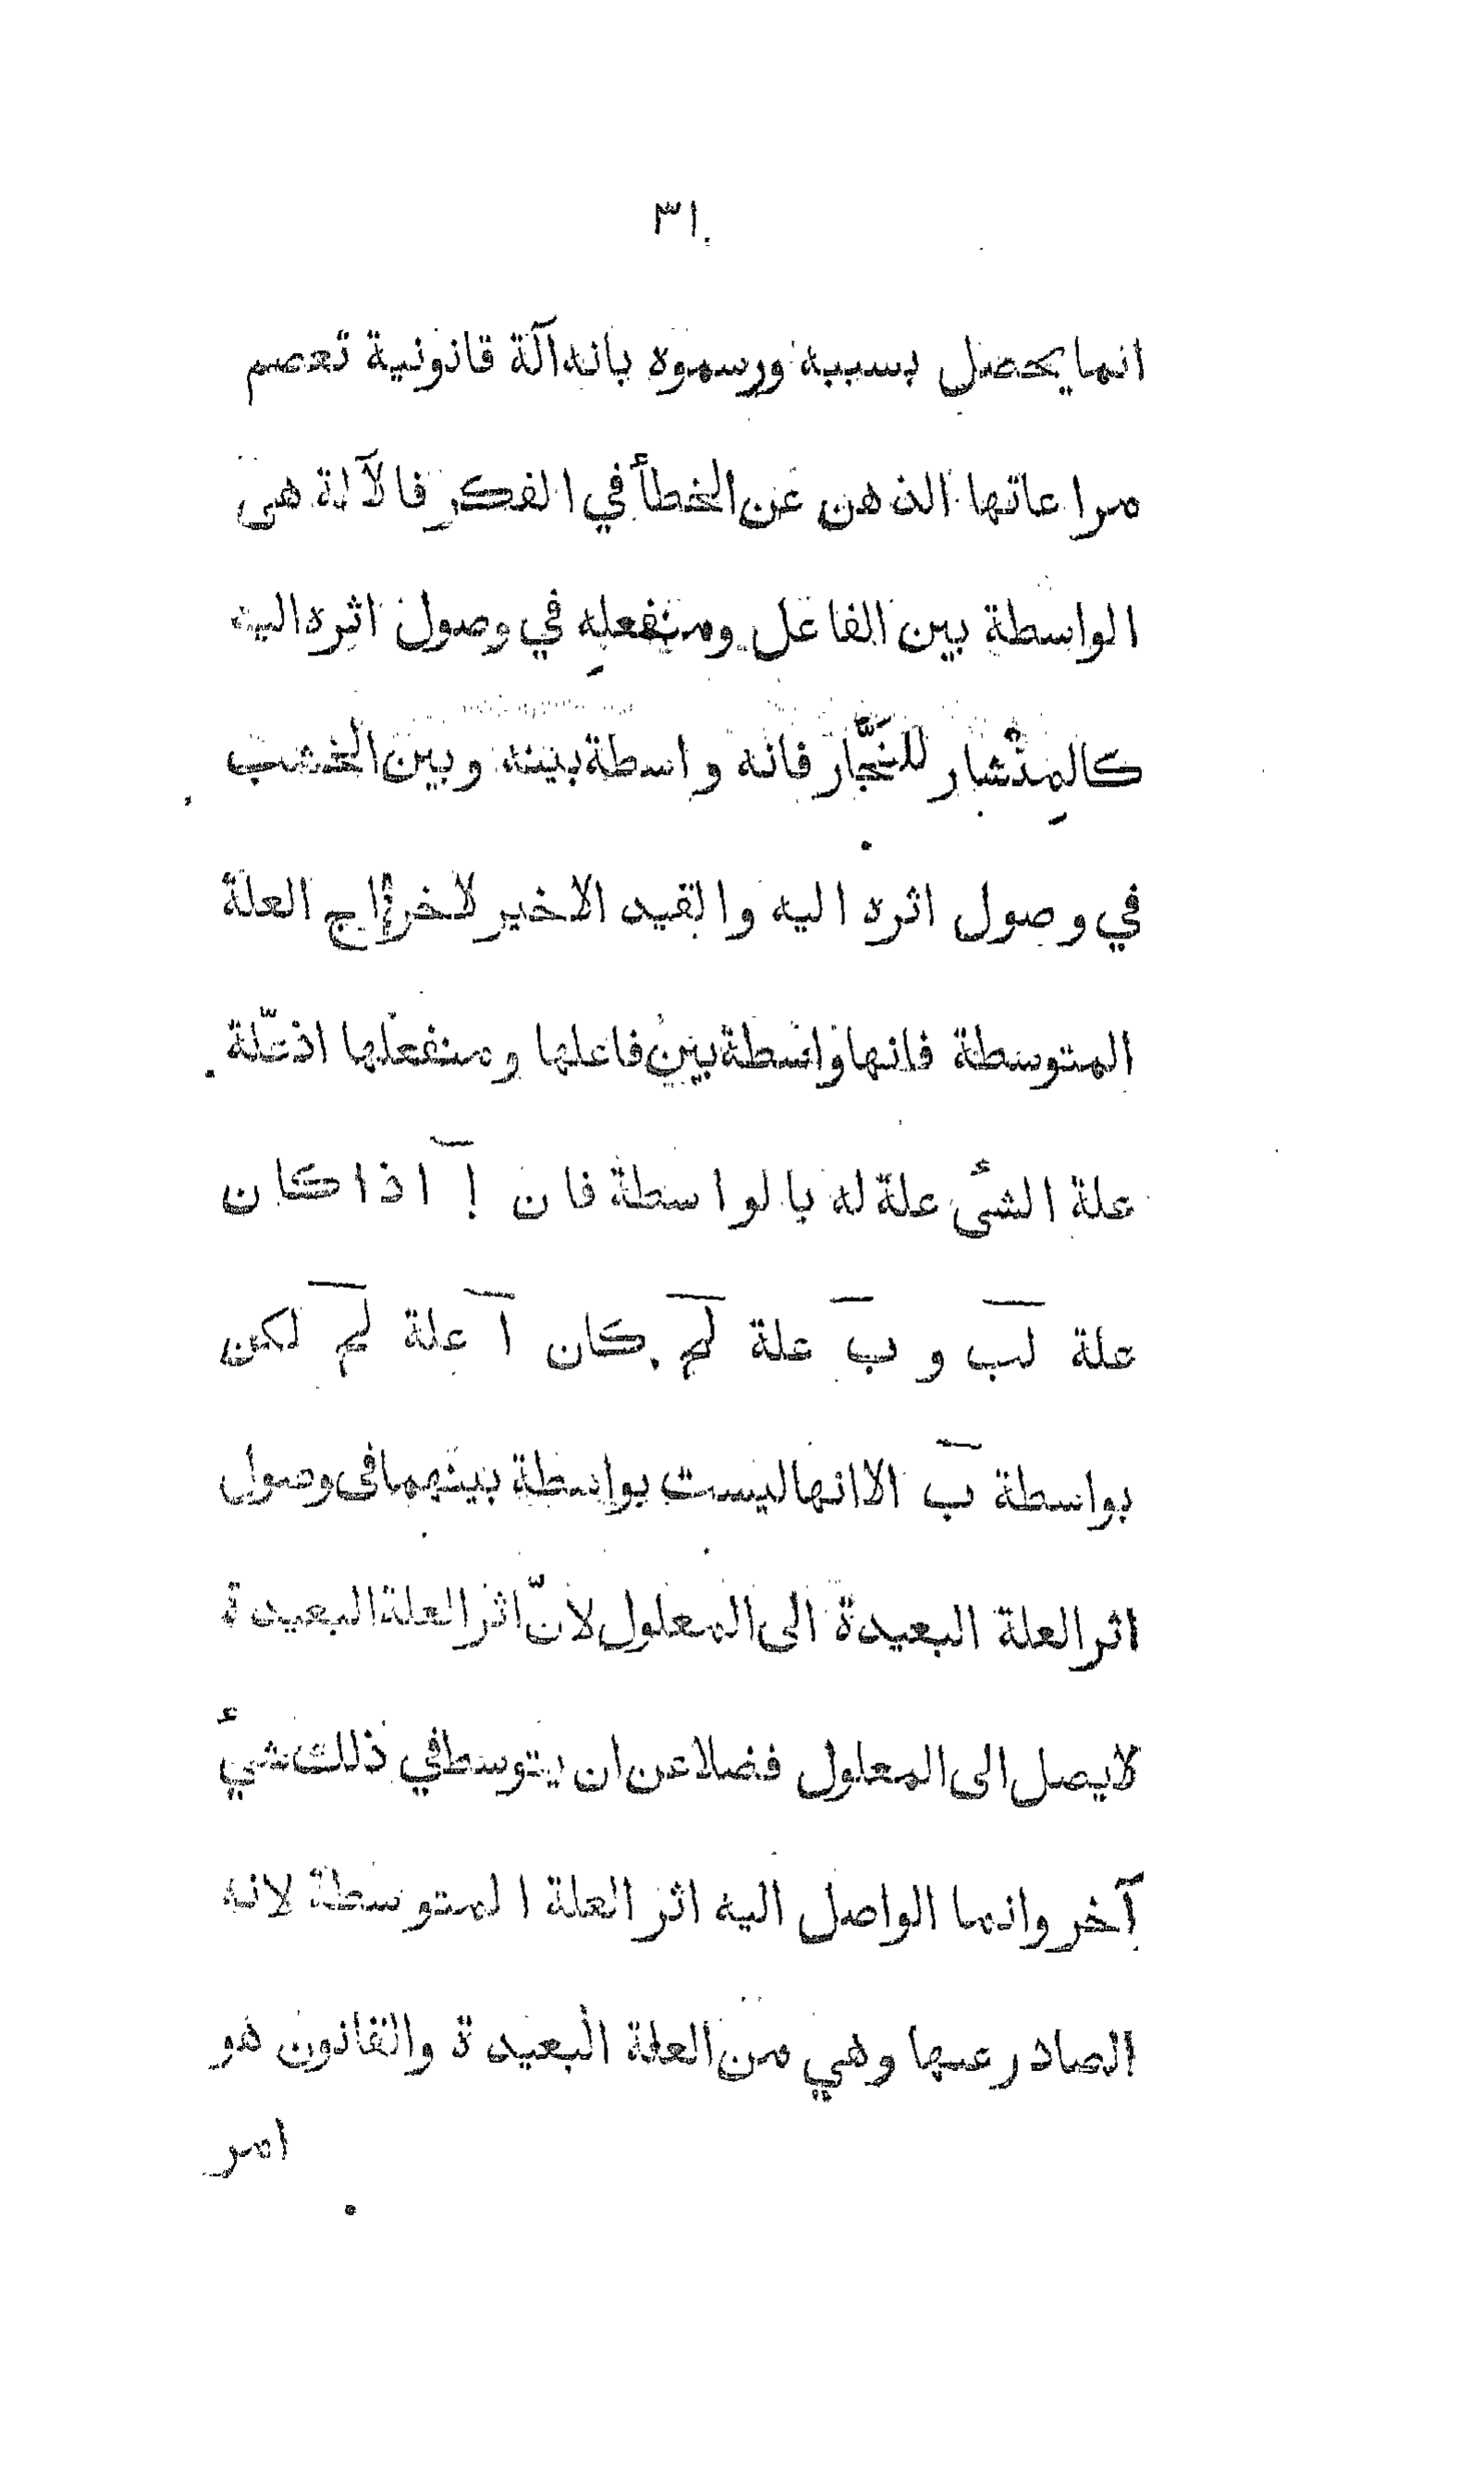 ٣١
انما يحصل بسببه ورسموه بانه آلة قانونية تعصم
مراعاتها الذهن عن الخطأ في الفكر فالآلة هى
الواسطة بين الفاعل ومنفعلِه في وصول اثره اليه
كالمِنْشار للنجَّار فانه واسطة بينه وبين الخشب
في وصول اثره اليه والقيد الاخير لاخراج العلة
المتوسطة فانها واسطة بين فاعلها ومنفعلها اذ علّة
علة الشئ علة له بالواسطة فان آ اذا كان
علة لب و ب علة لج كان آ علة لج لكن
بواسطة ب الا انها ليست بواسطة بينهما فى وصول
اثر العلة البعيدة الى المعلول لانّ اثر العلة البعيدة
لا يصل الى المعلول فضلا عن ان يتوسط في ذلك شيئ
آخر وانما الواصل اليه اثر العلة المتوسطة لانه
الصادر عنها وهي من العلة البعيدة والقانون هو
امر